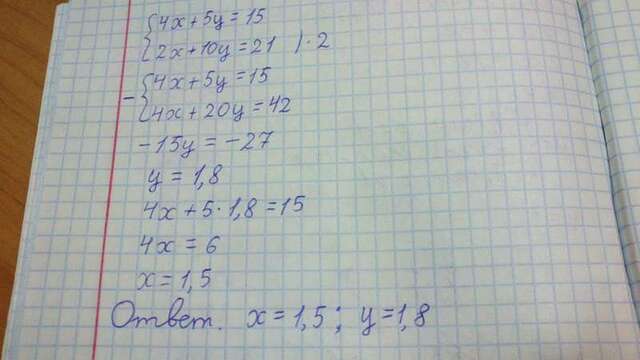 {4x+5y=15
{2x+10y=21 |·2
-{4x+5y=15
{4x+20y=42
-15y=-27
y=1,8
4x+5·1,8=15
4x=6
x=1,5
Ответ. x=1,5; y=1,8